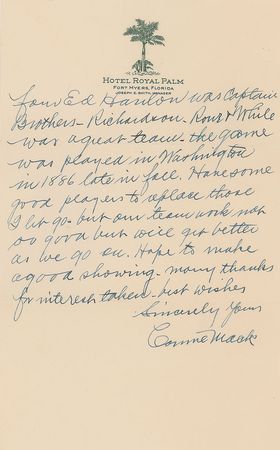 HOTEL ROYAL PALM
FORT MYERS, FLORIDA
JOSEPH E. SMITH, MANAGER
Ed Hanlon was Captain
Brothers - Richardson - Rowe & White
was a great team - the game
was played in Washington
in 1886 late in fall. Have some
good players to replace those
I let go - but our team work not
so good but we'll get better
as we go on. Hope to make
a good showing - many thanks
for interest taken - best wishes
Sincerely Yours
Connie Mack